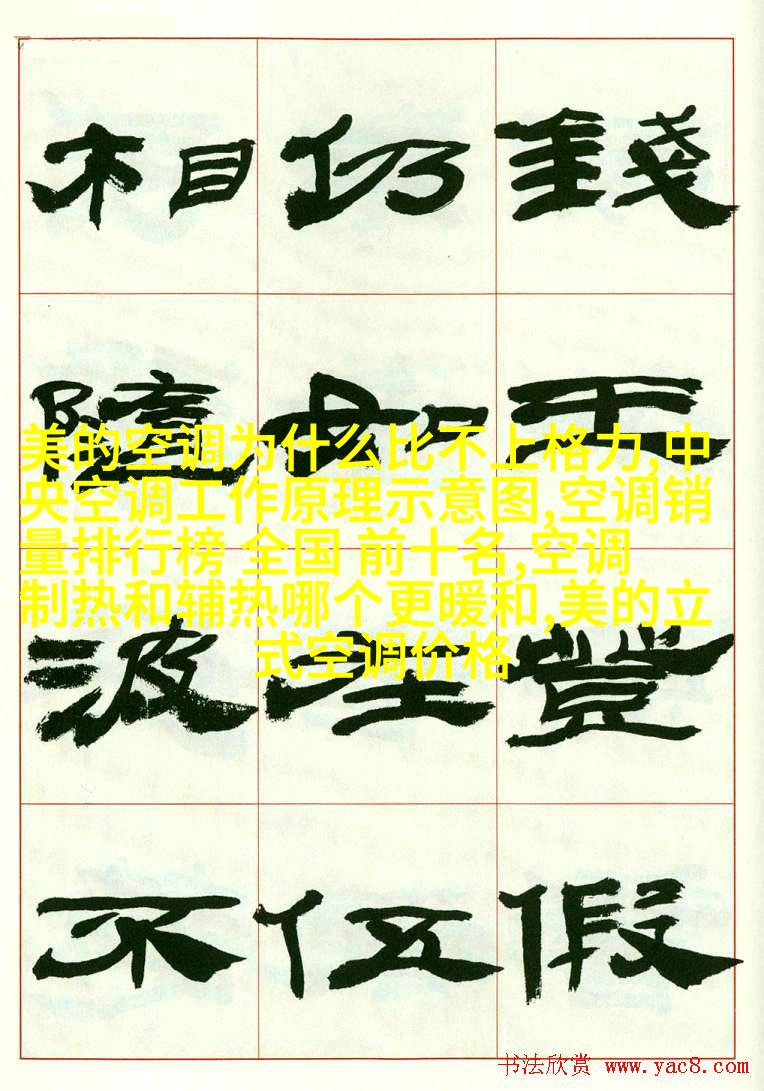 錢豈假
仍伍
相波不
美的空调为什么比不上格力,中
央空调工作原理示意图,空调销
量排行榜 全国 前十名,空调
制热和辅热哪个更暖和,美的立
式空调价格
书法欣赏 www.yac8.com